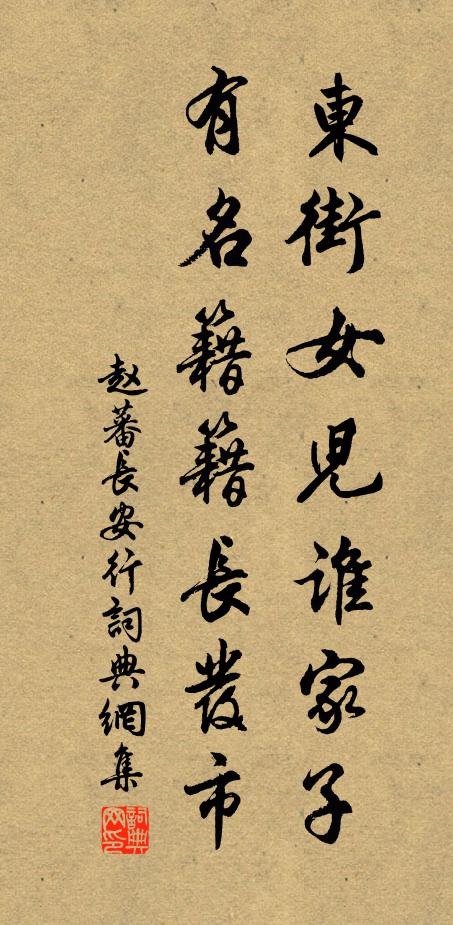 東街女児誰家子
有名籍籍長發市
赵蕃長安行詞典網集
詞典網印